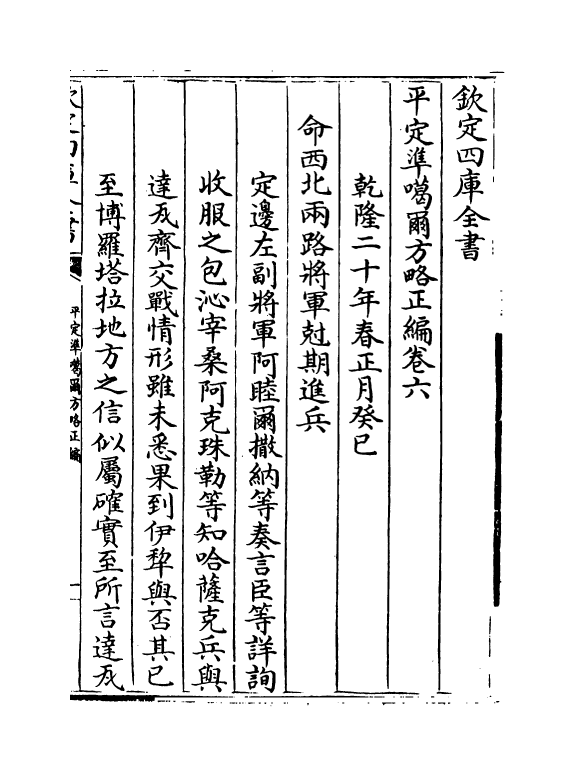 欽定四庫全書
平定準噶爾方略正編卷六
乾隆二十年春正月癸巳
命西北兩路將軍尅期進兵
定邊左副將軍阿睦爾撒納等奏言臣等詳詢
收服之包沁宰桑阿克珠勒等知哈薩克兵與
達瓦齊交戰情形雖未悉果到伊犂與否其已
至博羅塔拉地方之信似屬確實至所言達瓦
欽定四庫全書
平定準噶爾方略正編
一